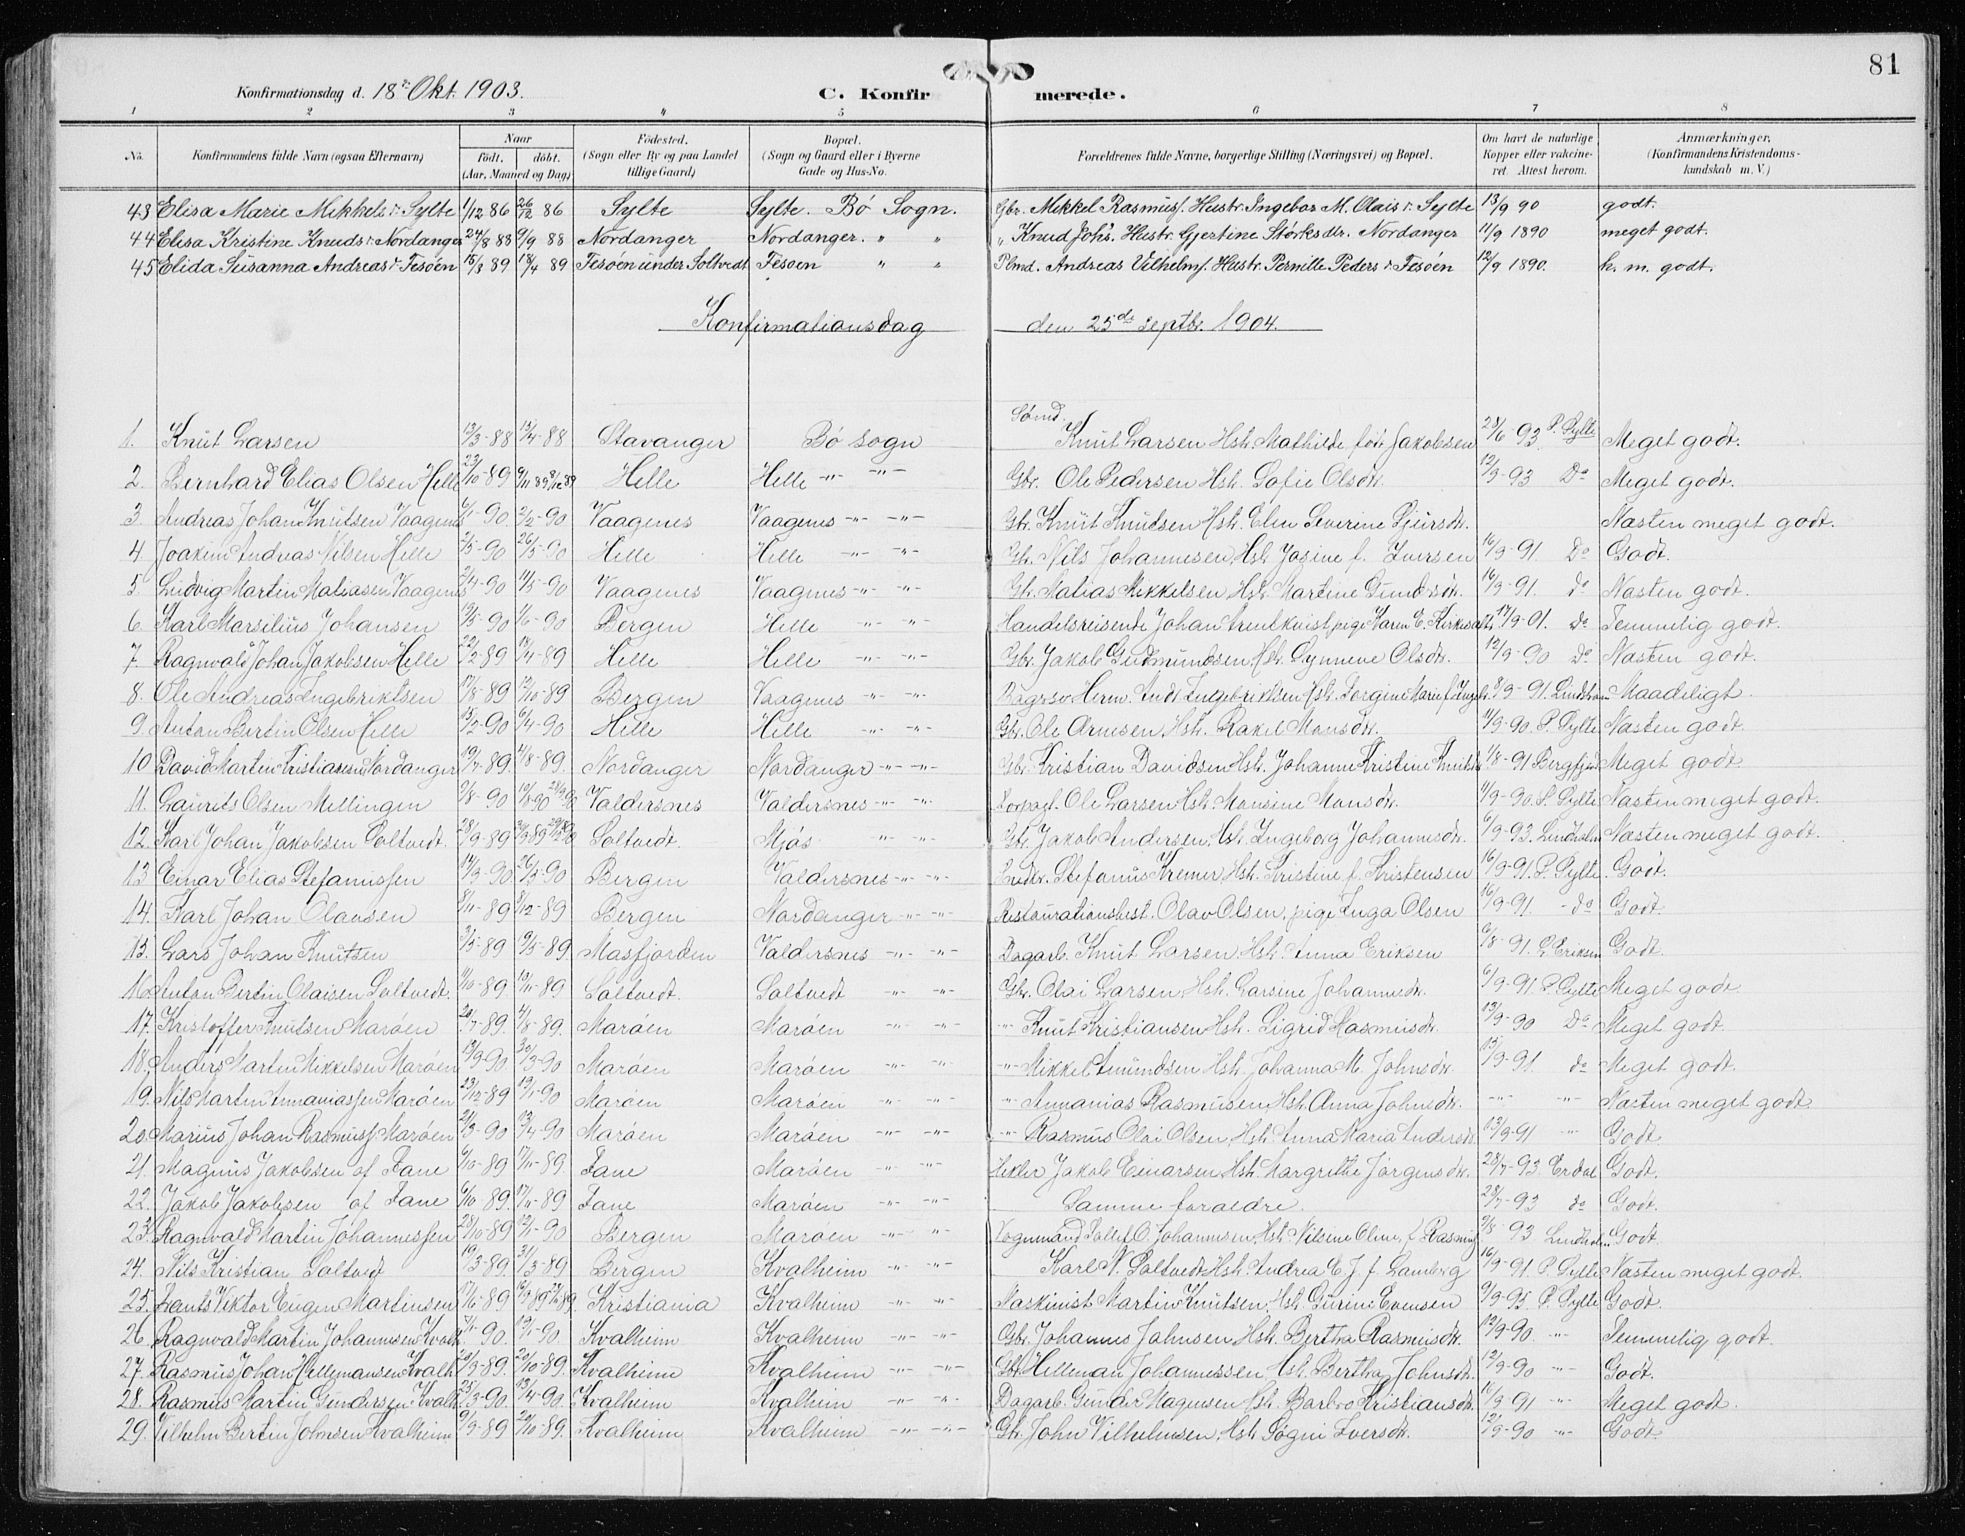 81
Konfirmationsdag d. 18de Okt. 1903. C. Konfirmerede.
1 2 3 4 5 6 7 8
No. Konfirmandens fulde Navn (ogsaa Efternavn) Naar født. døbt. (Aar, Maaned og Dag) Fødested. (Sogn eller By og paa Landet tillige Gaard) Bopæl. (Sogn og Gaard eller i Byerne Gade og Hus-No. Forældrenes fulde Navne, borgerlige Stilling (Næringsvei) og Bopæl. Om havt de naturlige Kopper eller vakcineret. Attest herom. Anmærkninger, (Konfirmandens Kristendomskundskab m. V.)
43 Elisa Marie Mikkels d. Sylte 1/12 86 26/12 86 Sylte Sylte. Bø Sogn. Gbr. Mikkel Rasmuss. Hustr. Ingebor M. Olais d. Sylte 13/9 90 godt.
44 Elisa Kristine Knuds d. Nordanger 24/8 88 9/9 88 Nordanger Nordanger. " " " Knud Johs. Hustr. Gjertine Størksdr. Nordanger 11/9 1890 meget godt.
45 Elida Susanna Andreas d. Fesøen 15/3 89 18/4 89 Fesøen under Soltvedt Fesøen " " Plmd. Andreas Vilhelms. Hustr. Pernille Peders d. Fesøen 12/9 1890. h. m. godt.
Konfirmationsdag den 25de Septbr. 1904.
1. Knut Larsen 13/3-88 13/4-88 Stavanger Bø sogn Sømd. Knut Larsen Hstr. Mathilde før Jakobsen 28/6 93 P. Sylte Meget godt.
2. Bernhard Elias Olsen Helle 23/10-89 9/11 89 Helle Helle -"- -"- Gbr. Ole Pedersen Hst. Sofie Olsdr. 12/9-93 Do Meget godt.
3. Andreas Johan Knutsen Vaagenes 6/1-90 2/2-90 Vaagenes Vaagenes -"- -"- Gbr. Knut Knutsen Hst. Elen Severine Sjursdr. Næsten meget godt.
4. Joakim Andreas Nilsen Helle 2/5-90 26/5-90 Helle Helle -"- -"- Gb. Nils Johannesen, Hst. Josine f. Iversen 16/9-91. Do Godt.
5. Ludvig Martin Matiasen Vaagenes 2/4-90 11/5-90 Vaagenes Vaagenes -"- -"- Gb. Matias Mikkelsen Hst. Martine Gundersdr. 16/9-91. do Næsten godt.
6. Karl Marsilius Johansen 19/5-90 1/6-90 Bergen Helle -"- -"- Handelsreisende Johan pige Karen E. 17/9-01. do Temmelig godt.
7. Ragnvald Johan Jakobsen Helle 22/2-89 14/4-89 Helle Helle -"- -"- Gbr. Jakob Gudmundsen, Hst. Synneve Olsdr. 12/9-90 Do Næsten godt.
8. Ole Andreas Ingebriktsen 17/8-89 13/10-89 Bergen Vaagenes -"- -"- Herm. Andr. Ingebriktsen Hst. Jorgine Marie f. 8/9-91. Lindholm Maadeligt.
9. Anton Bertin Olsen Helle 15/2-90 6/4-90 Helle Helle -"- -"- Gbr. Ole Arnesen, Hst. Rakel Monsdr. 11/9-90. P. Sylte Næsten godt.
10 David Martin Kristiansen Nordanger 19/7-89. 4/8-89. Nordanger Nordanger -"- -"- Gbr. Kristian Davidsen Hst. Johanne Kristine Knutsdr. 1/8-91 Meget godt.
11. Laurits Olsen Mellingen 9/8-90 Valdersnes Valdersnes -"- -"- Ole Larsen Hst. Monsine Monsdr. 11/9-90. P. Sylte Næsten meget godt.
12. Karl Johan Jakobsen Soltvedt. 28/9-89 Soltvedt. Mjøs -"- -"- Gb. Jakob Andersen, Hst. Ingeborg Johannesdr. 6/9-93. Lindholm Næsten meget godt.
13 Einar Elias Stefanussen 14/3-90 26/5-90 Bergen Valdersnes -"- -"- Snedkr. Stefanus Kremer Hst. Kristine f. Kristensen 16/9-91. P. Sylte. Godt.
14. Karl Johan Olausen 3/11-89 8/12-89 Bergen Nordanger -"- -"- Restaurationsbest. Olav Olsen, pige Inga Olsen 16/9-91. - do Godt.
15. Lars Johan Knutsen 3/5-89 9/5-89 Masfjorden Valdersnes -"- -"- Dagarb. Knut Larsen Hst. Anna Eriksen 6/8-91. Eriksen Godt.
16. Anton Bertin Olaisen Soltvedt. 11/10-89 10/11-89 Soltvedt. Soltvedt -"- -"- Gbr. Olai Larsen, Hst. Larsine Johannesdr. 6/9-91. P. Sylte Meget godt.
17. Kristoffer Knutsen Marøen 20/7-89. 4/8-89. Marøen Marøen -"- -"- -"- Knut Kristiansen Hst. Sigrid Rasmusdr. 13/9-90 Do Meget godt.
18. Anders Martin Mikkelsen Marøen 13/3-90. 30/3-90 Marøen Marøen -"- -"- -"- Mikkel Amundsen Hst. Johanna M. Johnsdr. 15/9-91 do Meget godt.
19. Nils Martin Annaniassen Marøen 23/12-89 19/1-90 Marøen Marøen -"- -"- -"- Annanias Rasmusen, Hst. Anna Johnsdr. -"- -"- Næsten meget godt.
20. Marius Johan Rasmuss. Marøen 21/3-90 13/4-90 Marøen Marøen -"- -"- -"- Rasmus Olai Olsen, Hst. Anna Maria Andersdr. 13/9-91 -"- Godt.
21. Magnus Jakobsen af Fane 6/10-89 17/11-89. Fane Marøen -"- -"- Jakob Einarsen Hst. Margrethe Jørgensdr. 28/7-93 Erdal Godt.
22. Jakob Jakobsen af Fane 6/10-89. 17/11-89 Fane Marøen -"- -"- Samme forældre. 28/7-93 do Godt.
23. Ragnvald Martin Johannessen 28/10-89 12/1-90 Bergen Marøen -"- -"- Vognmand O. Johannesen, Hst. Nilsine Oline, f. 9/8 93 Lindholm Godt.
24. Nils Kristian Soltvedt 19/3-89. 31/3-89 Bergen Kvalheim -"- -"- Karl N. Soltvedt Hst. Andrea E. J. f. Lamberg 16/9-91. P. Sylte Næsten meget godt.
25. Viktor Eugen Martinsen 17/6-89 Kristiania Kvalheim -"- -"- Maskinist Martin Knutsen, Hst. Gurine Evensen 9/9-95. P. Sylte Godt.
26. Ragnvald Martin Johannesen Kvalh. 7/1-90. 19/1-90. Kvalheim Kvalheim -"- -"- Gbr. Johannes Johnsen Hst. Bertha Rasmusdr. 12/9-90 -"- Temmelig godt.
27. Rasmus Johan Hellemansen Kvalh. 23/9-89. 20/10-89. Kvalheim Kvalheim -"- -"- Gbr. Helleman Johannessen Hst. Bertha Johnsdr. 12/9-90 -"- Godt.
28. Rasmus Martin Gundersen Kvalh. 25/3-90. 13/4-90. Kvalheim Kvalheim -"- -"- Dagarb. Gunder Magnusen Hst. Barbro Kristiansdr. 16/9-91 -"- Meget godt.
29. Vilhelm Bertin Johnsen Kvalheim 9/9-89 20/10-89. Kvalheim Kvalheim -"- -"- Gb. John Vilhelmsen, Hst. Søgni Iversdr. 12/9-90 -"- Godt.